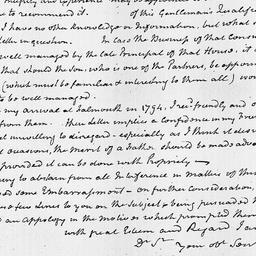 to recommend it. of this Gentleman's Qualifi
I have no other knowledge or Information, but what
letter in question. In case the Business of that Consu
well managed by the late Principal of that House, it
that should the son, who is one of the Partners, be appoin
(which must be familiar & interesting to them all) wou
to be well managed.
my arrival at Falmouth in 1754. I rec'd friendly and
from them. Their Letter implies a Confidence in my Frie
unwilling to disregard - especially as I think it does
occasions, the merit of a father should be made advan
provided it can be done with Propriety
to abstain from all Interference in Matters of this
some Embarrassment - on further consideration,
a few Lines to you on the Subject & being persuaded
an Appology in the Motives which prompted them
with great Esteem and Regard I am
Dr Sr
Your obt Serv